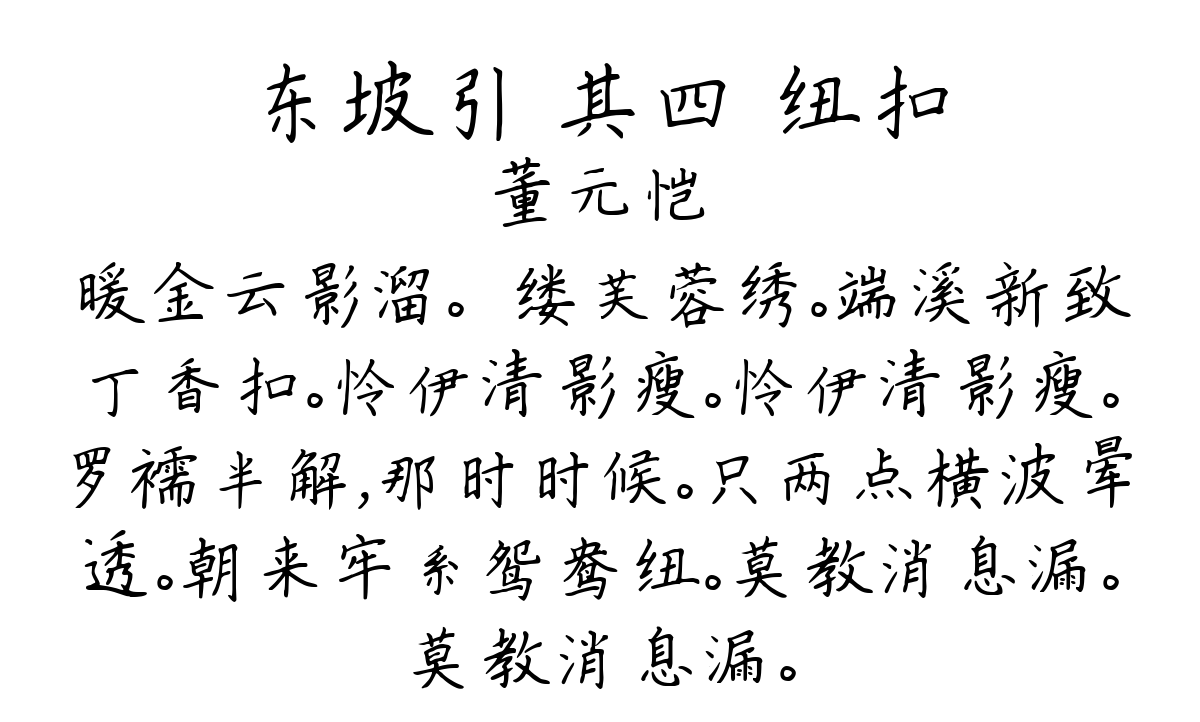 东坡引 其四 纽扣
董元恺
暖金云影溜。缕芙蓉绣。端溪新致
丁香扣。怜伊清影瘦。怜伊清影瘦。
罗襦半解,那时时候。只两点横波晕
透。朝来牢系鸳鸯纽。莫教消息漏。
莫教消息漏。